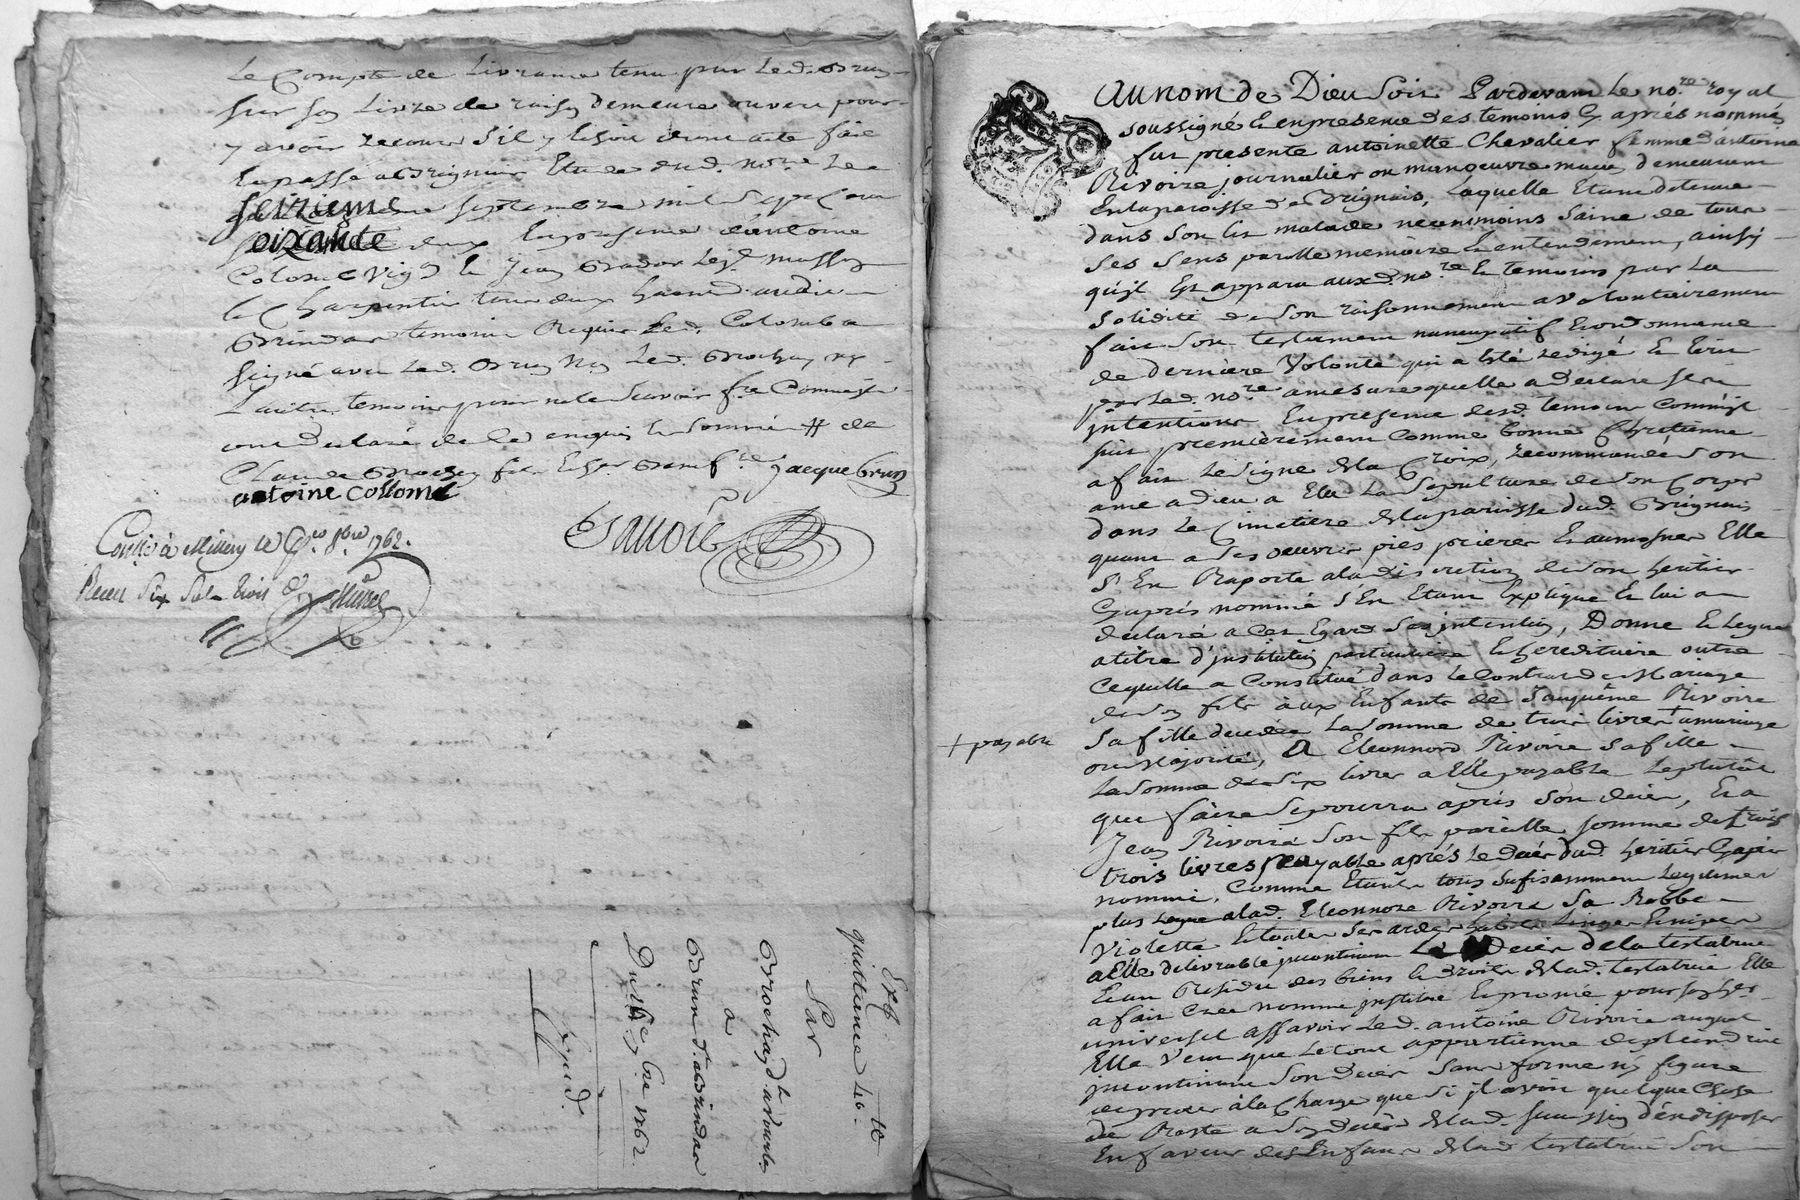 Le Compte de Livrance tenu par Led. Brun
sur son Livre de raison demeure ouvert pour
y avoir recours s'il y echoit dont acte fait
Et passé a Brignais Etude dud. no.re Le
seizieme septembre mil sept Cent
soixante deux En presence d'antoine
Colomb vig.n Et Jean
Et Charpentier tous deux
temoins Requis Led. Colomb a
signé avec Led. Brun non Led. Brochay ny
L'autre temoin pour ne le sçavoir f.re Comme ils
ont declaré de ce enquis Et sommés # de
Claude Brochay fils
jacque brun
antoine collomb
Coull.é à Millery le 8bre 1762.
Receu six sols trois d.
Exp.
quittance 46.
Par
Brochay
a
Brun
Du 16 7bre 1762.
Exped.
Au nom de Dieu soit Pardevant Le no.re royal
soussigné Et en presence des temoins Cy après nommés
fut presente antoinette Chevalier femme d'antoine
Rivoire journalier ou manœuvre demeurant
En la paroisse de Brignais, Laquelle Etant detenue
dans son lit malade neanmoins saine de tous
ses sens parolle memoire Et entendement, ainsy
qu'il Est apparu aux d. no.re Et temoins par La
solidité de son raisonnement a volontairement
fait son testament nuncupatif Et ordonnance
de dernière Volonté qui a Eté redigé En Ecrit
par Led. no.re amesure quelle a declaré ses
intentions En presence desd. temoins Comme il
suit premièrement Comme bonne Chretienne
a fait Le signe de la Croix, recommandé son
ame a Dieu a Elu La sepulture de son Corps
dans Le Cimetière de la paroisse dud. Brignais
quant a ses œuvres pies prieres Et aumosnes Elle
s'En Raporte a la discretion de son heritier
Cy après nommé s'En Etant Expliqué Et lui a
declaré a cet Egard ses jntention, Donne Et Legue
a titre d'jnstitution particuliere Et hereditaire outre
Ce quelle a Constitué dans le Contrat de Mariage
de son fils aux Enfants de Rivoire
sa fille decedée La somme de trois livres + a mariage
+ payable
ou Majorité, A Eleonnord Rivoire sa fille
La somme de six livres a Elle payable Le plutôt
que faire se pourra après son decès, Et a
Jean Rivoire son fils pareille somme de trois
trois livres payable après Le decès dud. heritier Cy après
nommé, Comme Etants tous sufisamment Legitimés
plus Legue a lad. Eleonnore Rivoire sa Robbe
Violette Et toutes ses ardes habits Linges
a Elle delivrable jncontinent Le Decès de la testatrice
Et au Residu des biens Et Droits de lad. testatrice Elle
a fait Créé nommé jnstitué Et pour son her.
universel assavoir Led. antoine Rivoire auquel
Elle Veut que Le tout appartienne de plein droit
jncontinent son decès sans forme ny figure
de procès à la Charge que si jl avoit quelque Chose
de Reste a son decès de lad. d'en disposer
En faveur des Enfants de lad. testatrice son